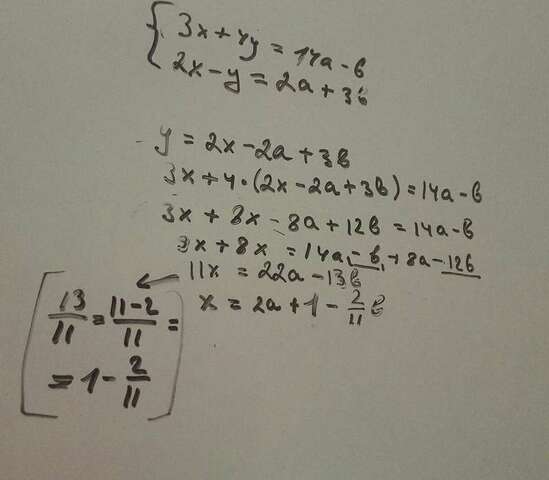 3x + 4y = 14a - b
2x - y = 2a + 3b
y = 2x - 2a + 3b
3x + 4 · (2x - 2a + 3b) = 14a - b
3x + 8x - 8a + 12b = 14a - b
3x + 8x = 14a - b + 8a - 12b
11x = 22a - 13b
x = 2a + 1 - 2/11 b
13/11 = 11-2/11 =
= 1 - 2/11